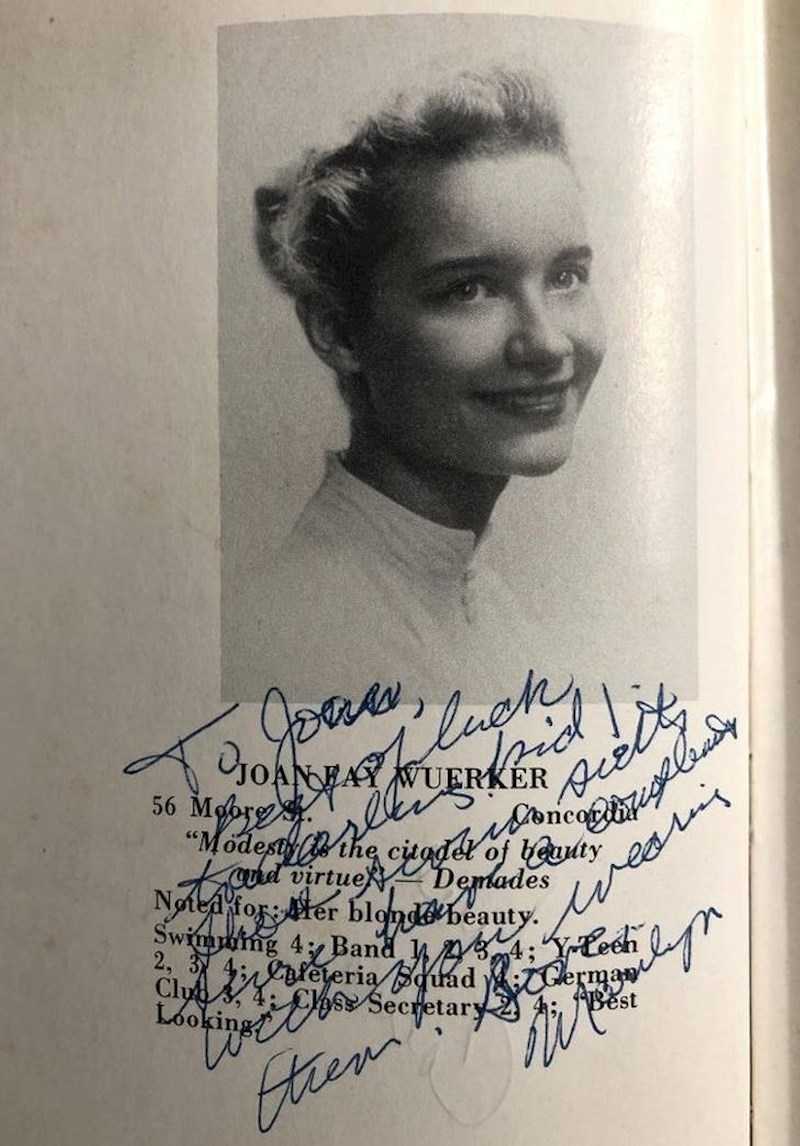 To Joan,
Best of luck
to a darling kid!
JOAN FAY WUERKER
56 Moore St. Concordia
"Modesty is the citadel of beauty
and virtue." — Demades
Noted for: Her blonde beauty.
Swimming 4; Band 1, 2, 3, 4; Y-Teen
2, 3, 4; Cafeteria Squad 4; German
Club 3, 4; Class Secretary 2, 4; "Best
Looking."
wearing
them.
Marilyn